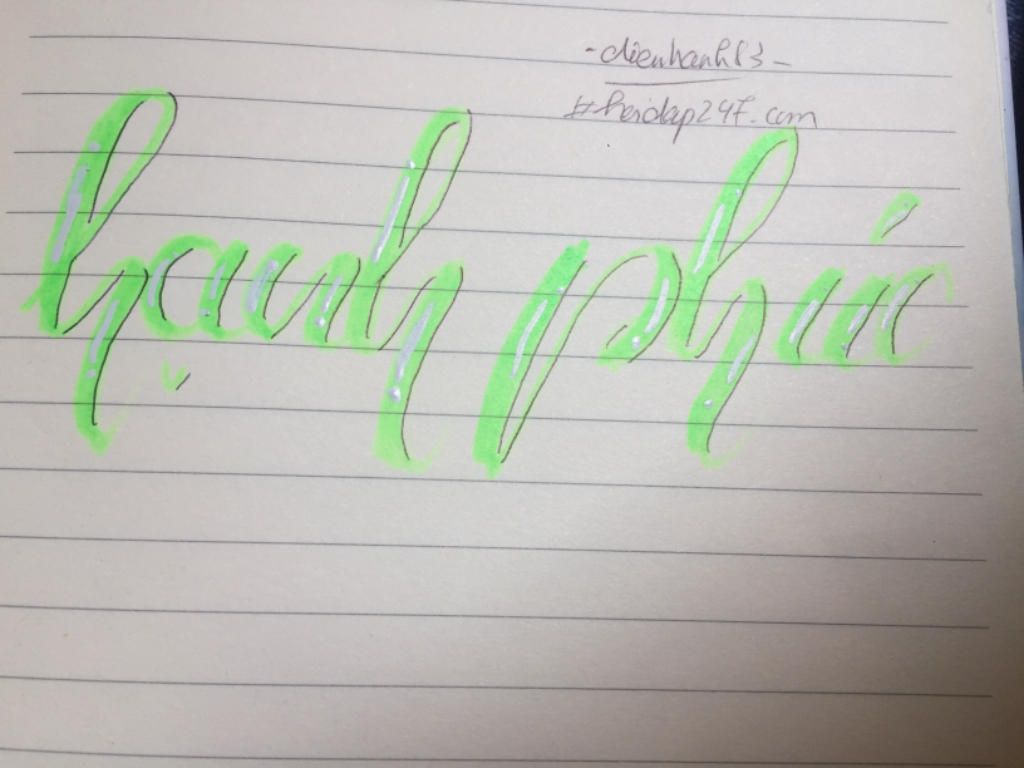 -dienhanh83-
#hoidap247.com
hạnh phúc